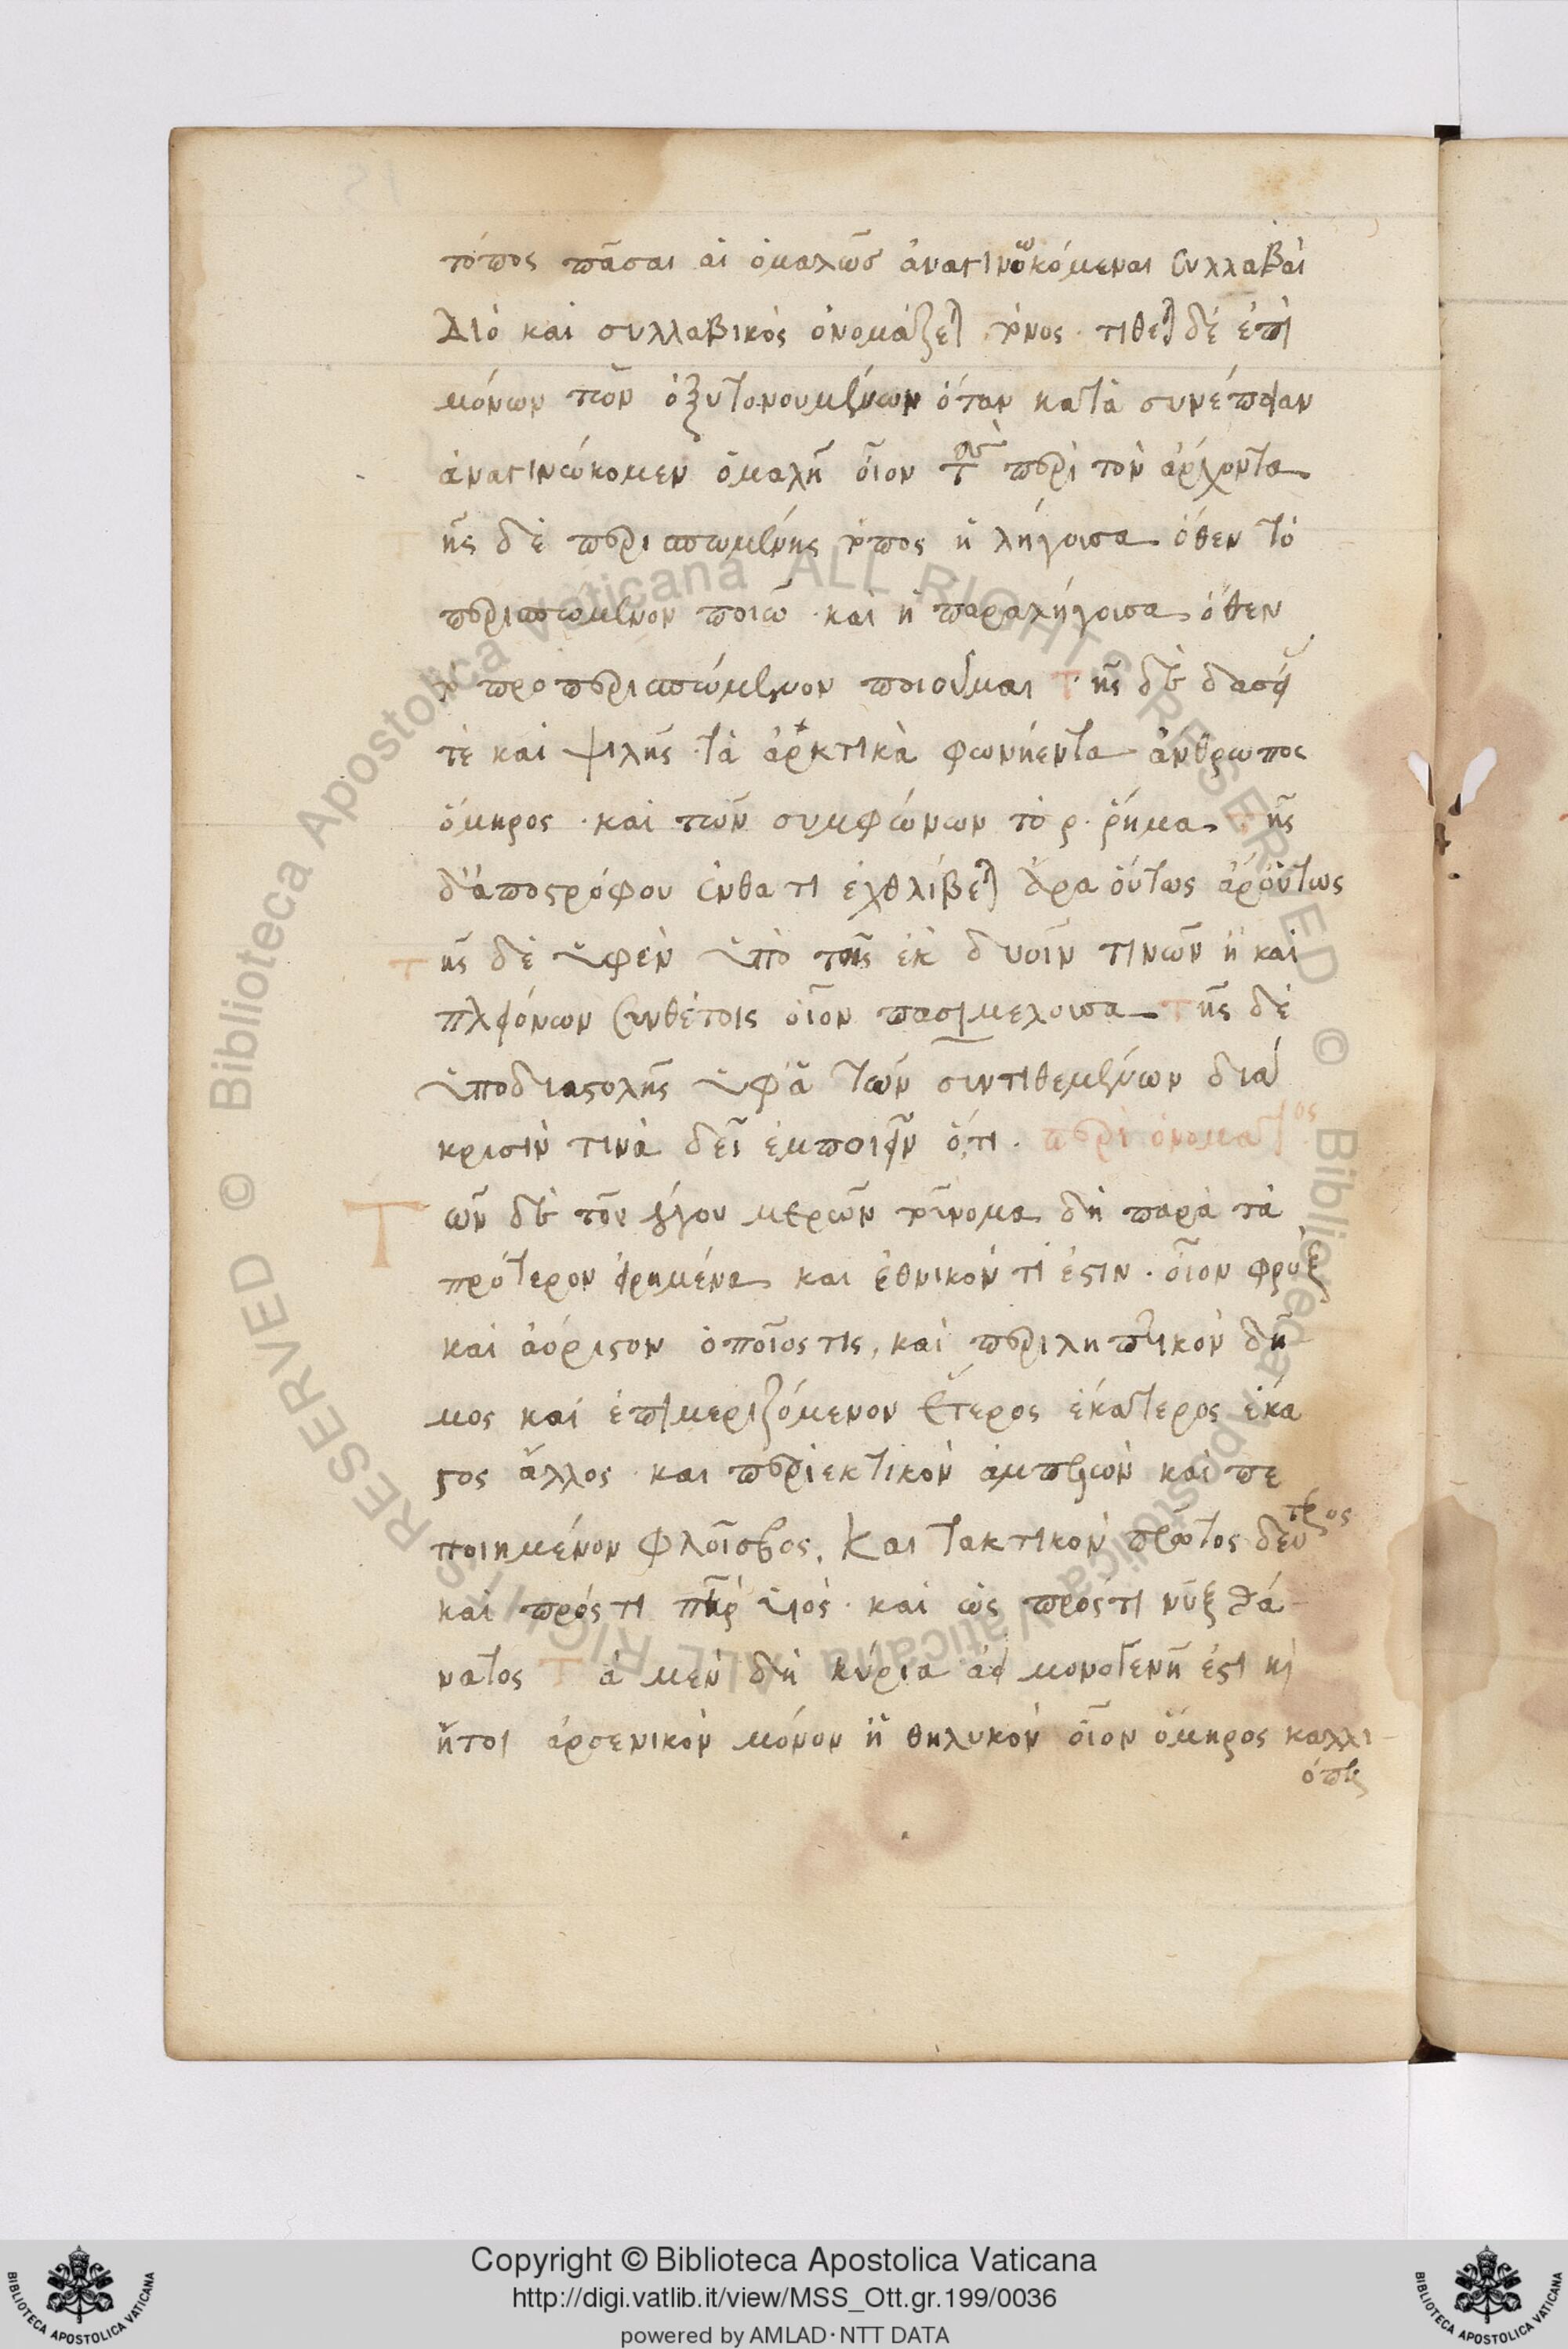 τόπος πᾶσαι αἱ ὁμαλῶς ἀναγινωσκόμεναι συλλαβαί
Διό καὶ συλλαβικός ὀνομάζεται τόνος · τίθεται δέ ἐπί
μόνων τῶν ὀξυτονουμένων ὅταν κατὰ συνέπειαν
ἀναγινώκομεν ὁμαλῆ οἷον περὶ τὸν ἄρχοντα
ῆς δὲ περισπωμένης τόπος ἡ λήγουσα ὅθεν τό
περισπώμενον ποιῶ · καὶ ἡ παραλήγουσα ὅθεν
τό προπερισπώμενον ποιοῦμαι τῆς δὲ δασεί
τέ καὶ ψιλῆς τὰ ἀρκτικὰ φωνήεντα ἄνθρωπος
ὅμηρος · καὶ τῶν συμφώνων τὸ ρ · ῥῆμα τῆς
δ'ἀποστρόφου ἔνθα τι ἐχθλίβεται ἄρα οὕτως ἀρ'οὕτως
τῆς δὲ ὑφὲν ὑπὸ τοῖς ἐκ δυοῖν τινῶν ἢ καὶ
πλειόνων συνθέτοις οἷον πασιμέλουσα τῆς δὲ
ὑποδιαστολῆς ὑφ'ἃ τῶν συντιθεμένων διά
κρισίν τινὰ δεῖ ἐμποιεῖν ὅ,τι · περὶ ὀνόματος
Τῶν δὲ τοῦ λόγου μερῶν τοὔνομα δὴ παρὰ τὰ
πρότερον εἰρημένα καὶ ἐθνικόν τί ἐστιν · οἷον φρύξ
καὶ ἀόριστον ὁποῖος τις, καὶ περιληπτικόν δῆ
μος καὶ ἐπιμεριζόμενον ἕτερος ἑκάτερος ἕκα
στος ἄλλος · καὶ περιεκτικὸν ἀμπελών καὶ πε
ποιημένον φλοῖσβος. Και τακτικόν πρῶτος δεύτερος
καὶ πρός τι πατήρ υἱός · καὶ ὡς πρός τι νύξ θά
νατος Τὰ μὲν δὴ κύρια ἀεί μονογενῆ ἐστι καὶ
ἤτοι ἀρσενικὸν μόνον ἢ θηλυκόν οἷον ὅμηρος καλλι
όπη
Copyright © Biblioteca Apostolica Vaticana
http://digi.vatlib.it/view/MSS_Ott.gr.199/0036
powered by AMLAD·NTT DATA